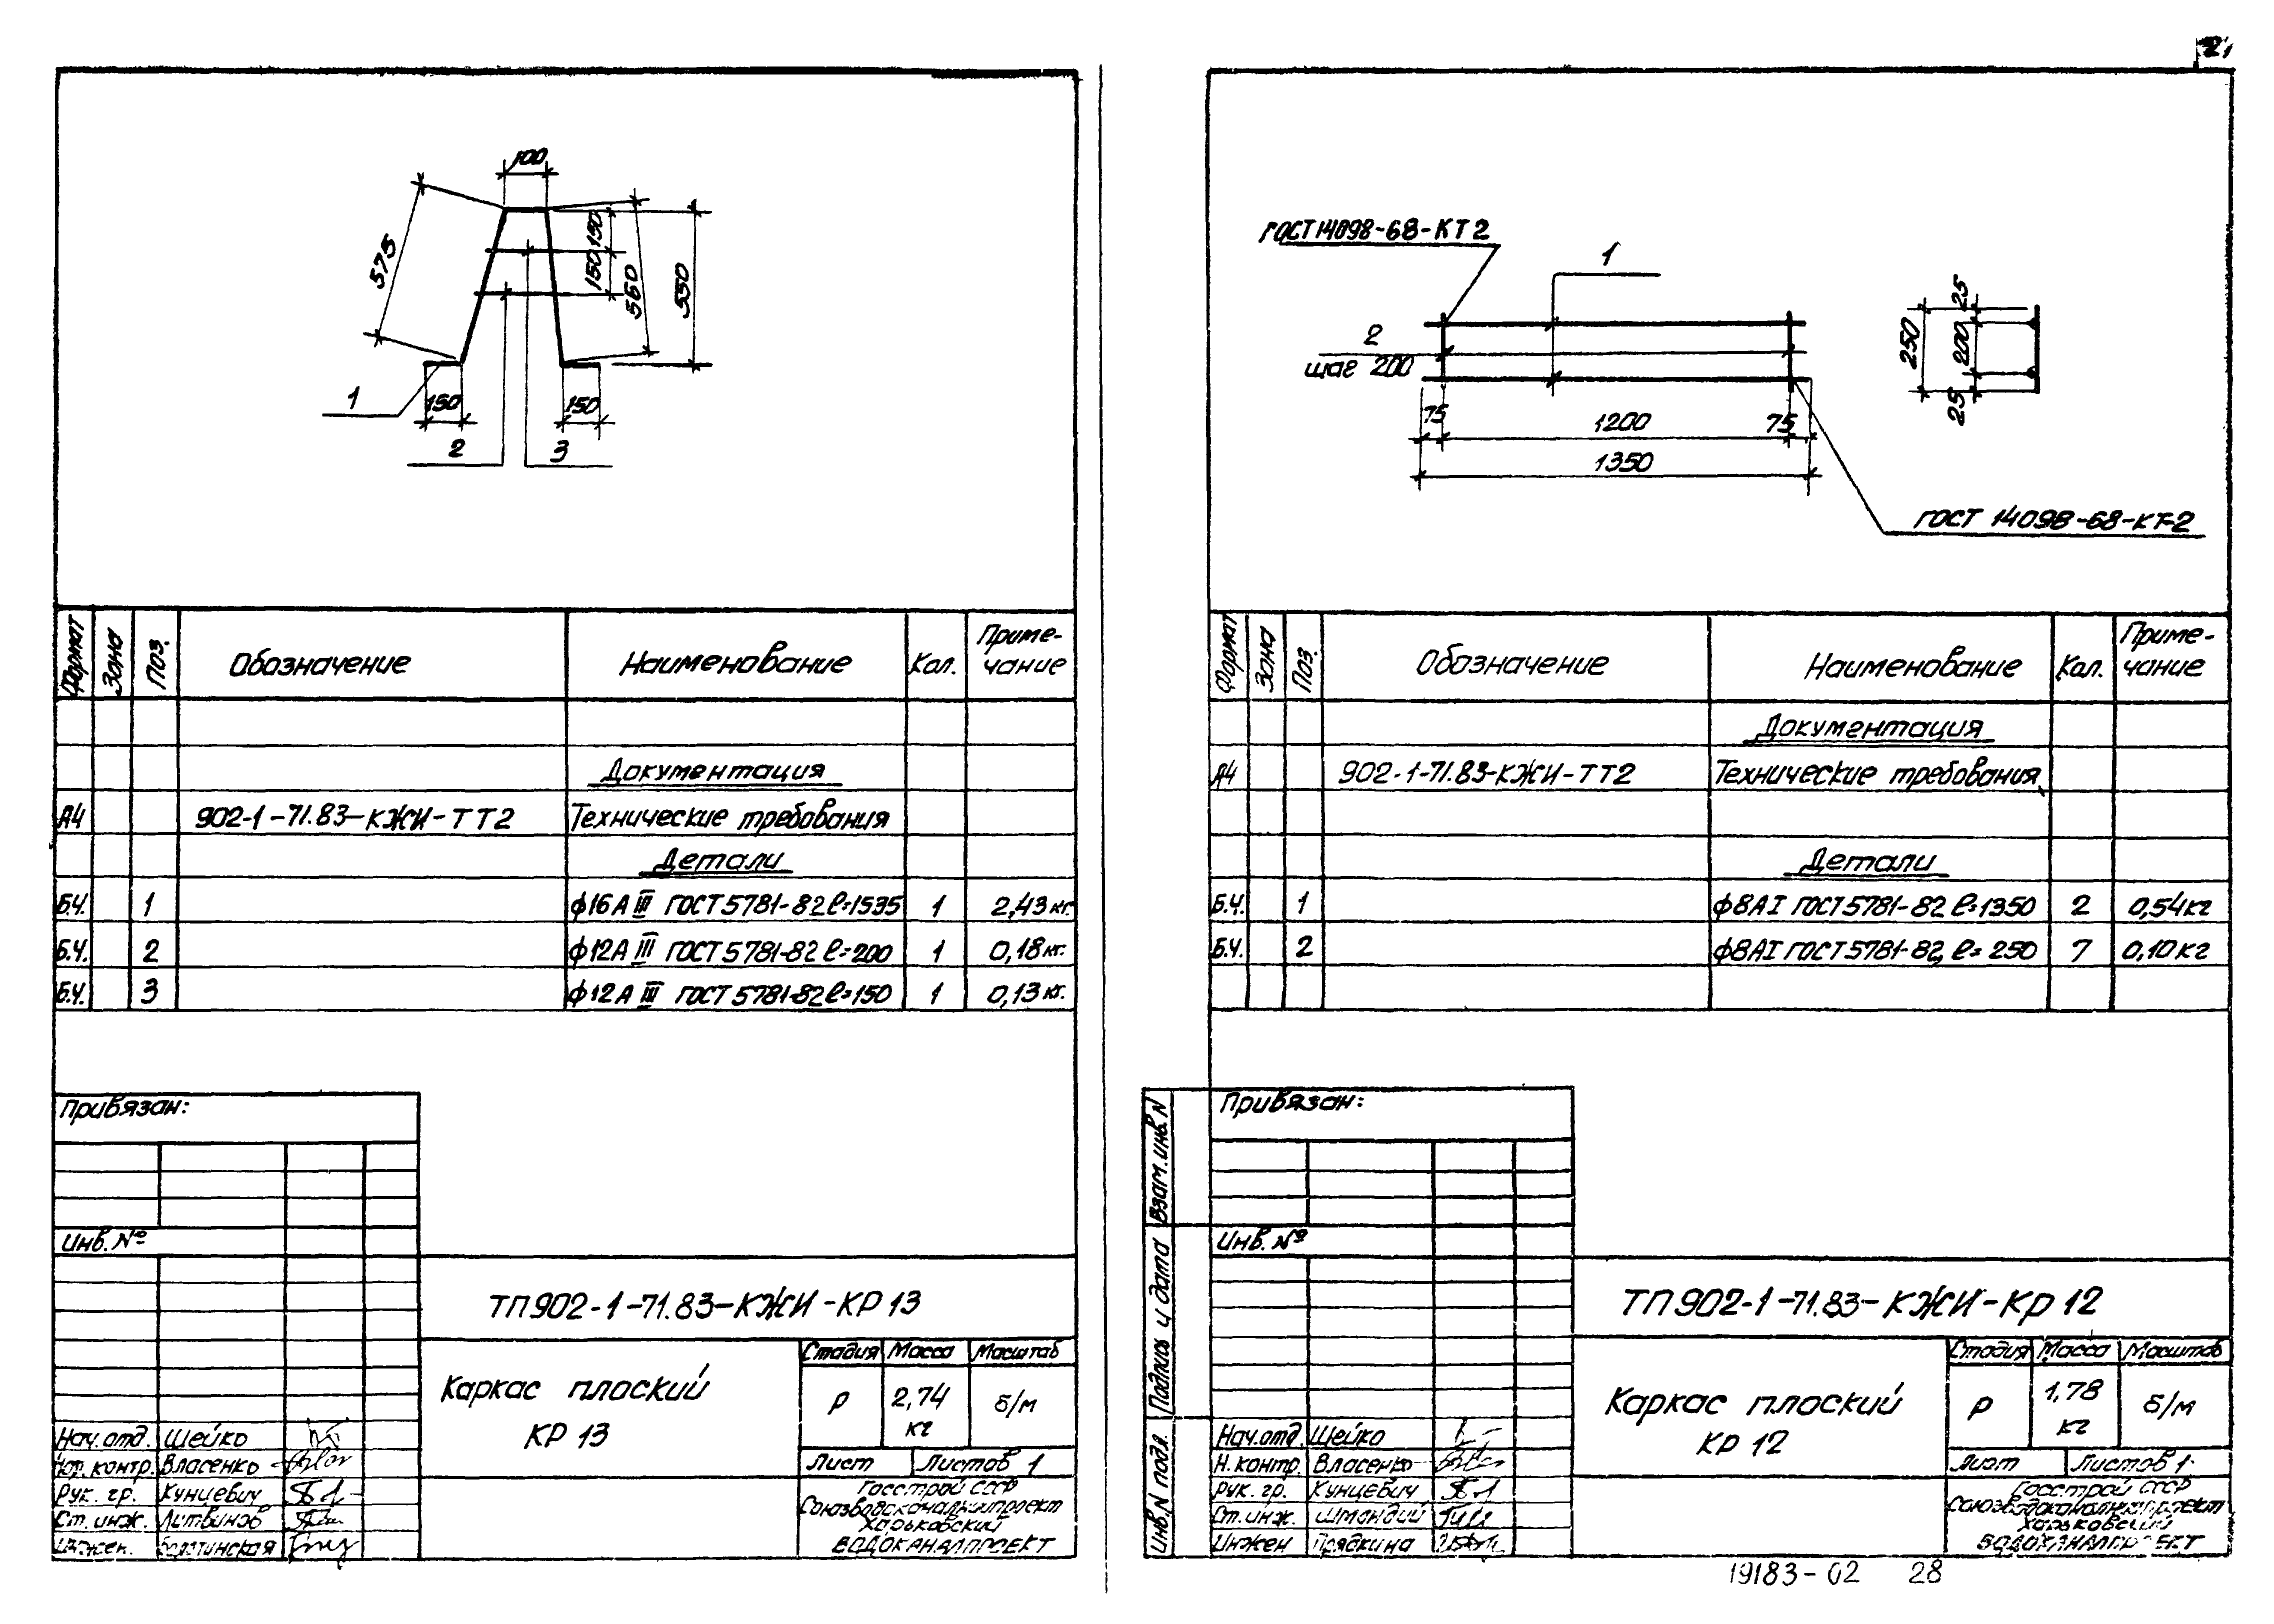 21
100
575
150
150
560
550
1
150
150
2
3
Формат
Зона
Поз.
Обозначение
Наименование
Кол.
Приме-
чание
Документация
А4 902-1-71.83-КЖИ-ТТ2 Технические требования
Детали
Б.Ч. 1 ф16АIII ГОСТ5781-82 ℓ=1535 1 2,43 кг.
Б.Ч. 2 ф12АIII ГОСТ5781-82 ℓ=200 1 0,18 кг.
Б.Ч. 3 ф12АIII ГОСТ5781-82 ℓ=150 1 0,13 кг.
Привязан:
Инв. №
ТП902-1-71.83-КЖИ-КР13
Каркас плоский
КР 13
Стадия Масса Масштаб
Р 2,74 кг б/м
Лист Листов 1
Госстрой СССР
Союзводоканалниипроект
Харьковский
ВОДОКАНАЛПРОЕКТ
Нач.отд. Шейко
Нор.контр. Власенко
Рук. гр. Кунцевич
Ст. инж. Литвинов
Инжен.
ГОСТ 14098-68-КТ2
1
2
шаг 200
75
1200
75
1350
250
25
200
25
ГОСТ 14098-68-КТ-2
Формат
Зона
Поз.
Обозначение
Наименование
Кол.
Приме-
чание
Документация
А4 902-1-71.83-КЖИ-ТТ2 Технические требования
Детали
Б.Ч. 1 ф8АI ГОСТ5781-82 ℓ=1350 2 0,54кг
Б.Ч. 2 ф8АI ГОСТ5781-82, ℓ=250 7 0,10кг
Взам.инв.N
Подпись и дата
Инв.N подл.
Привязан:
Инв. №
ТП902-1-71.83-КЖИ-КР12
Каркас плоский
КР 12
Стадия Масса Масштаб
Р 1,78 кг б/м
Лист Листов 1
Госстрой СССР
Союзводоканалниипроект
Харьковский
ВОДОКАНАЛПРОЕКТ
Нач.отд. Шейко
Н.контр. Власенко
Рук. гр. Кунцевич
Ст. инж. Шмандий
Инжен Прядкина
19183-02 28